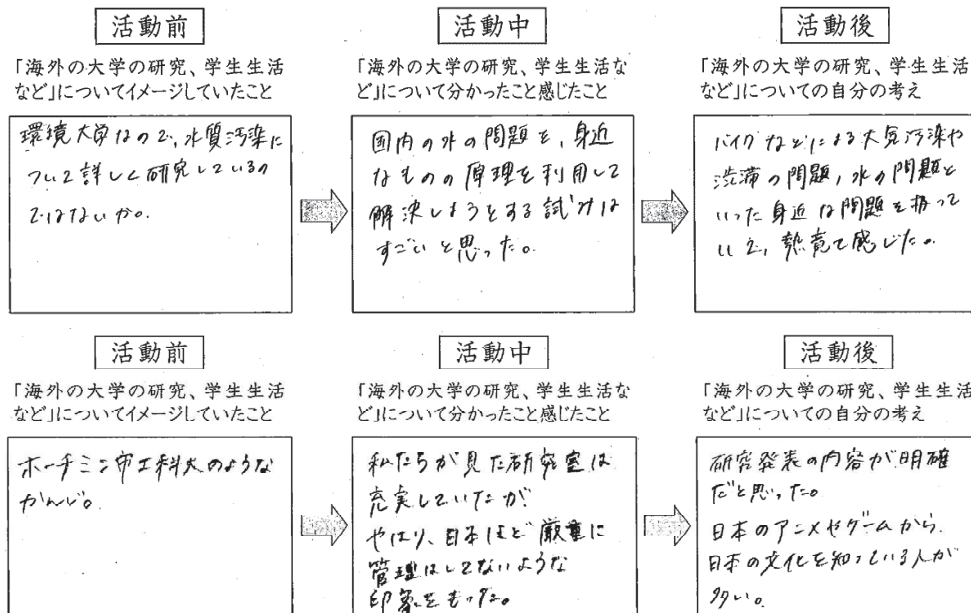 活動前
「海外の大学の研究、学生生活
など」についてイメージしていたこと
環境大学なので、水質汚染に
ついて詳しく研究しているの
ではないか。
活動中
「海外の大学の研究、学生生活な
ど」について分かったこと感じたこと
国内の水の問題を、身近
なものの原理を利用して
解決しようとする試みは
すごいと思った。
活動後
「海外の大学の研究、学生生活
など」についての自分の考え
バイクなどによる大気汚染や
渋滞の問題，水の問題と
いった身近な問題を扱って
いて，熱意を感じた。
活動前
「海外の大学の研究、学生生活
など」についてイメージしていたこと
ホーチミン市工科大のような
かんじ。
活動中
「海外の大学の研究、学生生活な
ど」について分かったこと感じたこと
私たちが見た研究室は
充実していたが
やはり、日本ほど厳重に
管理はしてないような
印象をもった。
活動後
「海外の大学の研究、学生生活
など」についての自分の考え
研究発表の内容が明確
だと思った。
日本のアニメやゲームから
日本の文化を知っている人が
多い。